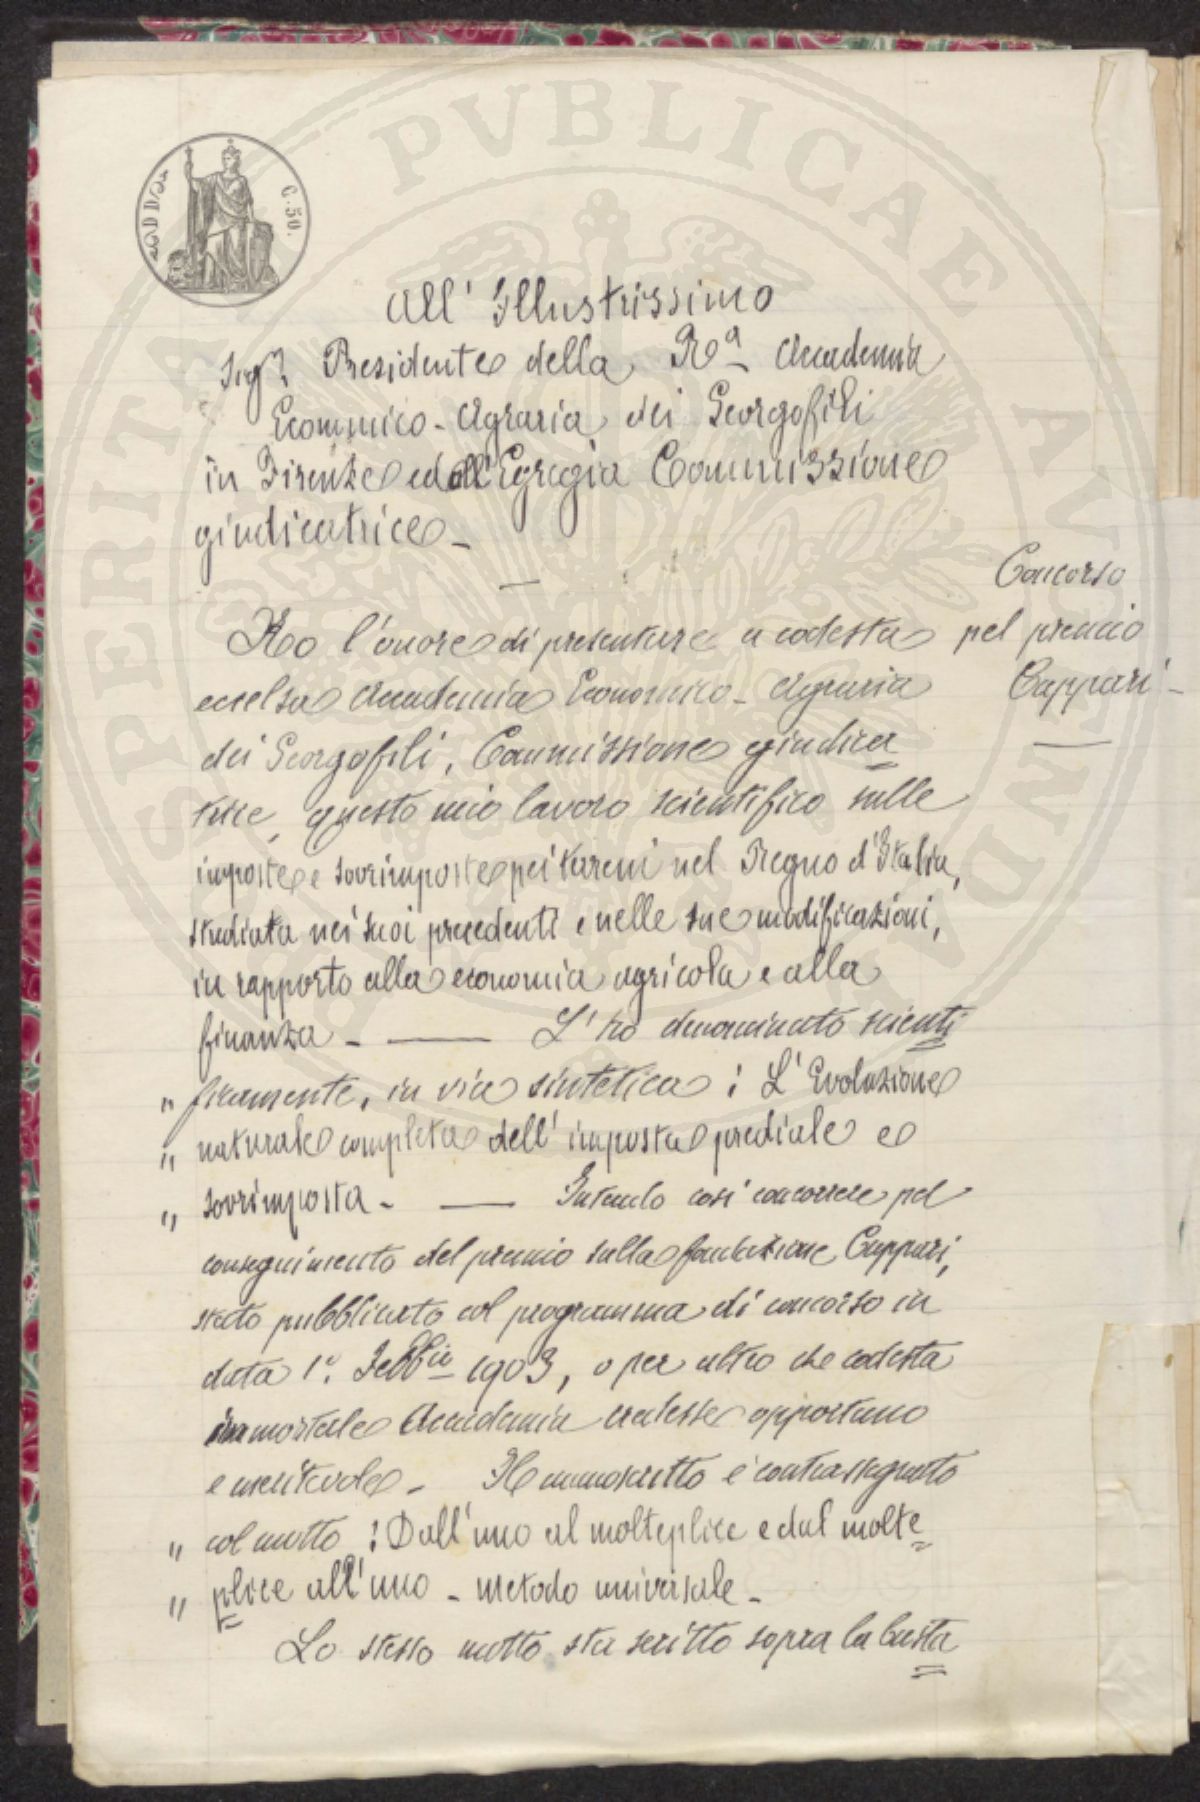 PROSPERITATI PUBLICAE AUGENDAE
C. 50.
All' Illustrissimo
Sigr. Presidente della Ra Accademia
Economico-Agraria dei Georgofili
in Firenze ed all'Egregia Commissione
giudicatrice -
Concorso
pel premio
Cappari -
Ho l'onore di presentare a codesta
eccelsa Accademia Economico-Agraria
dei Georgofili, Commissione giudica
trice, questo mio lavoro scientifico sulle
imposte e sovrimposte pei tereni nel Regno d'Italia,
studiata nei suoi precedenti e nelle sue modificazioni,
in rapporto alla economia agricola e alla
finanza - —— L'ho denominato scienti
" ficamente, in via sintetica: L'Evoluzione
" naturale completa dell'imposta prediale e
" sovrimposta - —— Intendo così concorrere pel
conseguimento del premio sulla fondazione Cappari,
stato pubblicato col programma di concorso in
data 1°. Febbio 1903, o per altro che codesta
immortale Accademia credesse opportuno
e meritevole - Il manoscritto è contrassegnato
" col motto: Dall'uno al molteplice e dal molte
" plice all'uno - metodo universale -
Lo stesso motto sta scritto sopra la busta